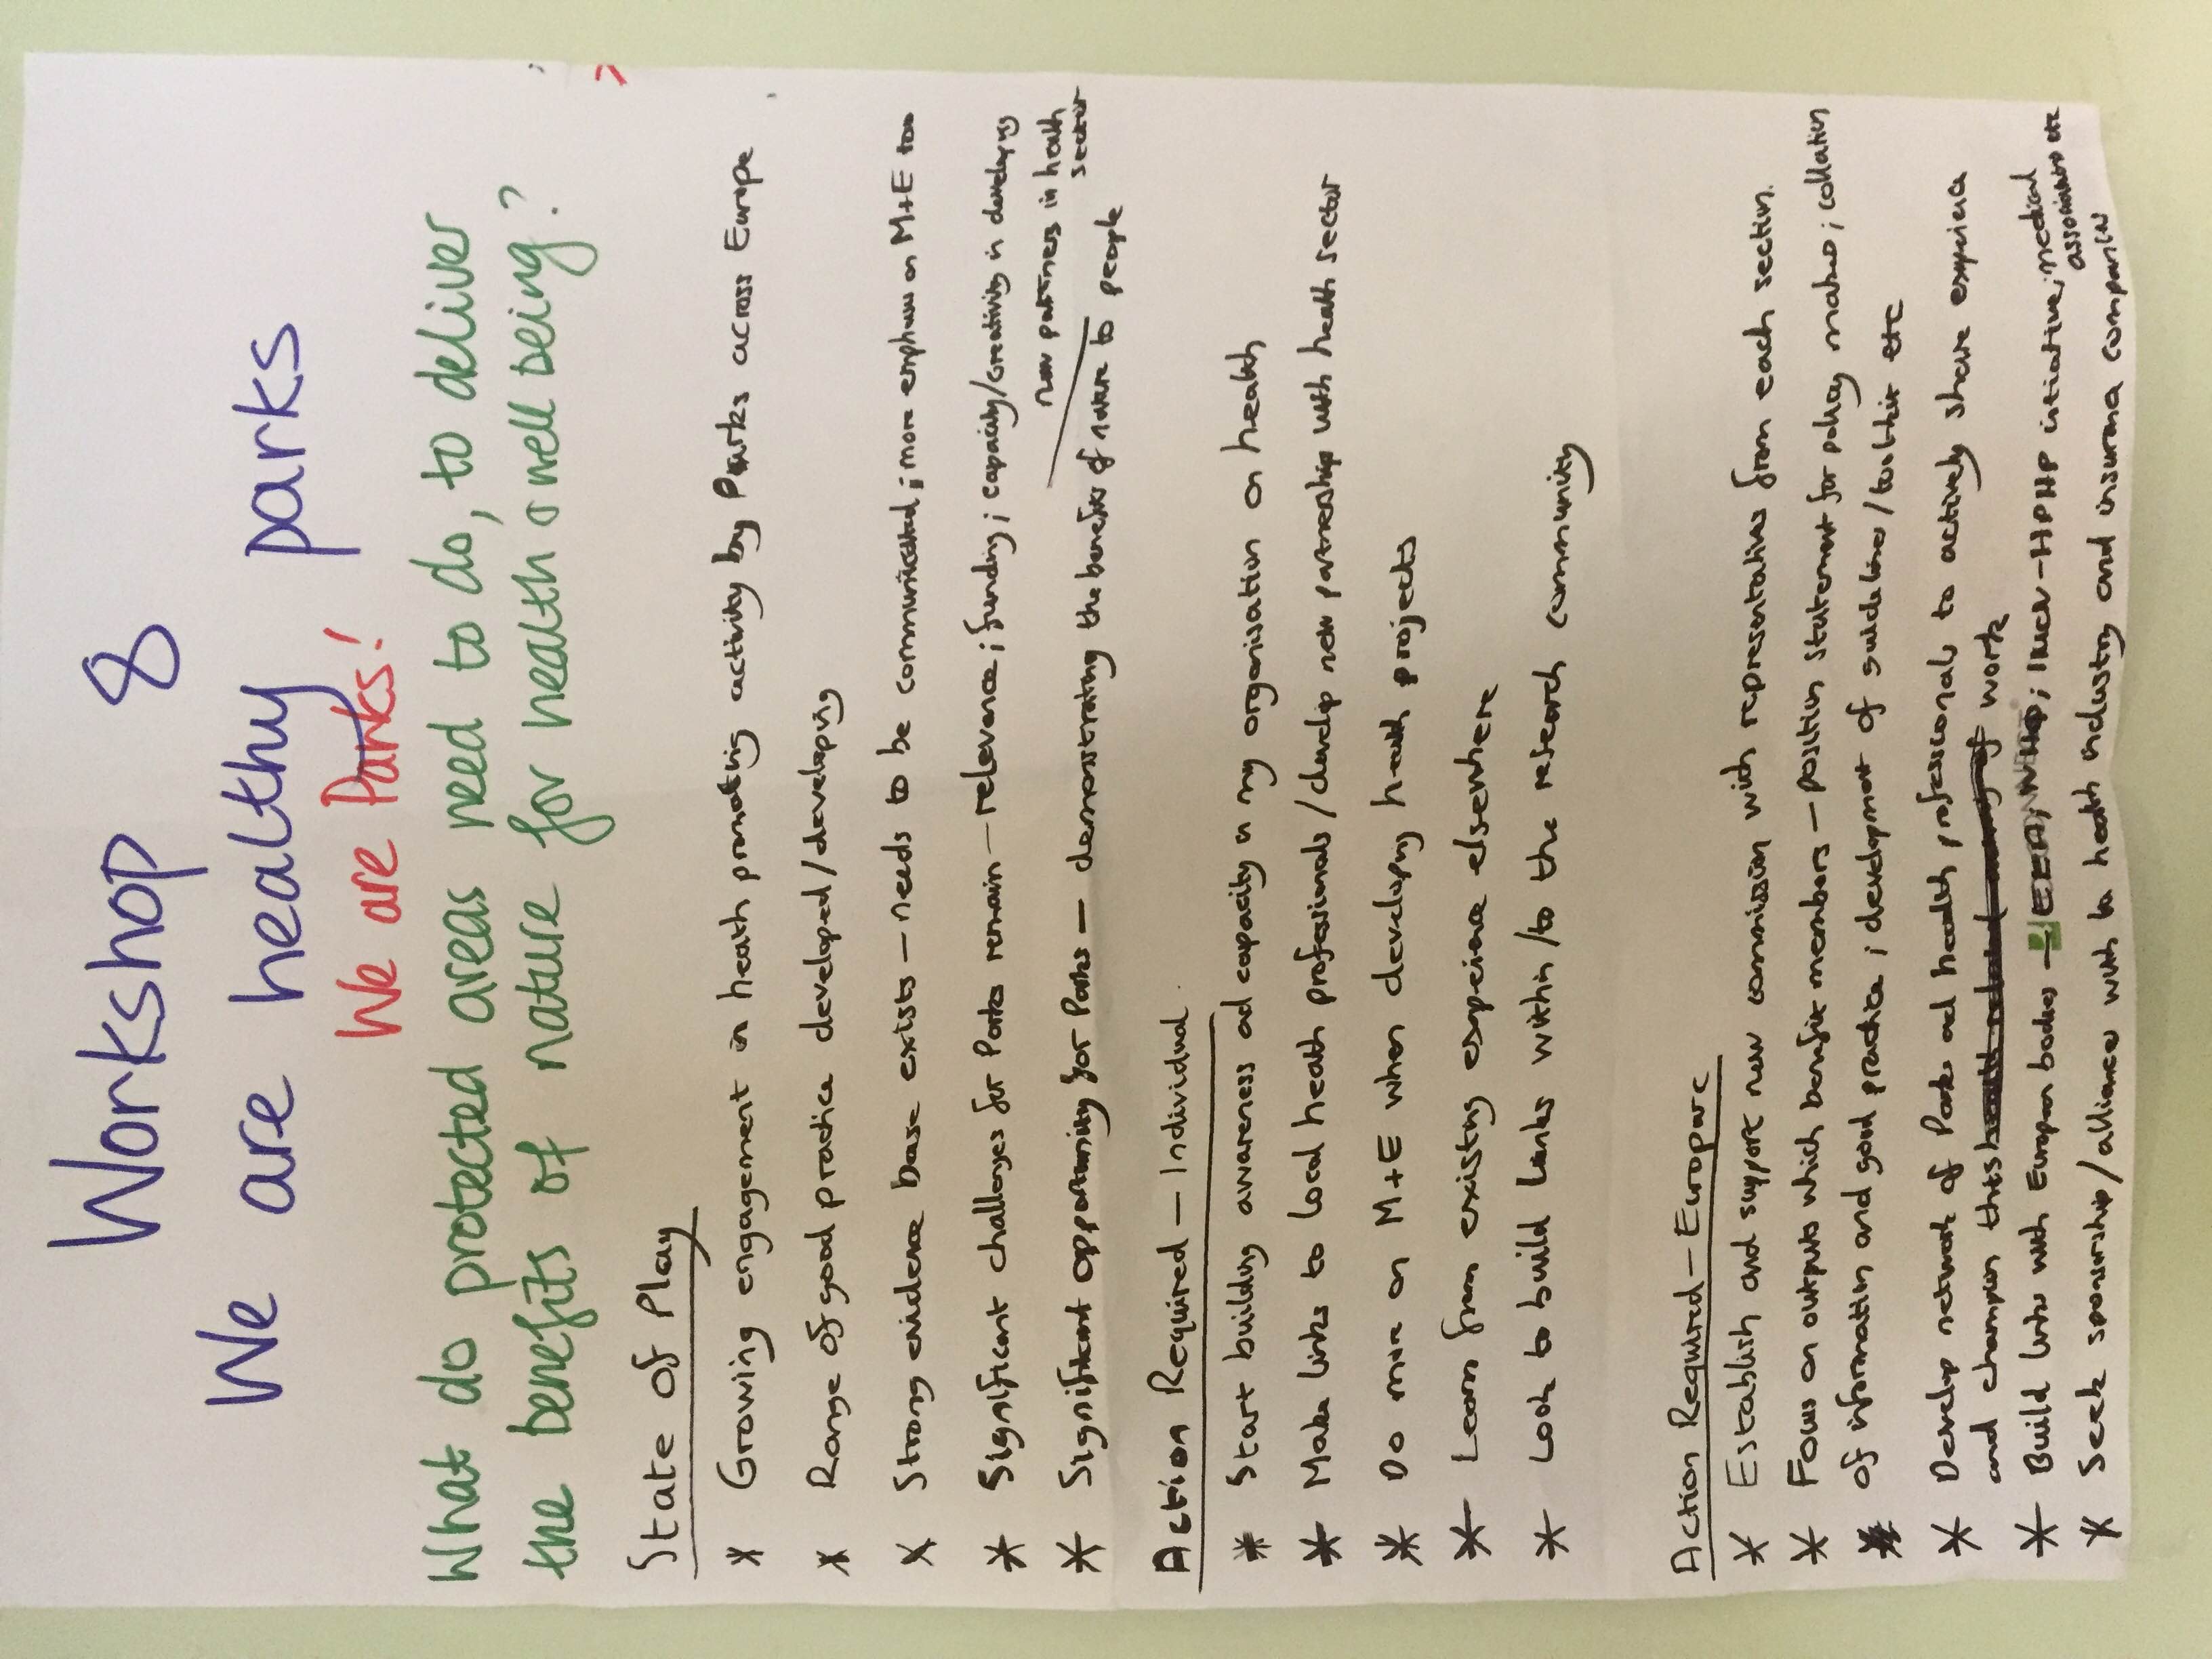 Workshop 8
We are healthy parks
We are Parks!
What do protected areas need to do, to deliver
the benefits of nature for health & well being?
State of Play
* Growing engagement in health promoting activity by Parks across Europe
* Range of good practice developed/developing
* Strong evidence base exists - needs to be communicated; more emphasis on M+E too
* Significant challenges for Parks remain - relevance; funding; capacity/creativity in developing
new partners in health
sector
* Significant opportunity for Parks - demonstrating the benefits of nature to people
Action Required - Individual
* Start building awareness ad capacity in my organisation on health
* Make links to local health professionals/develop new partnership with health sector
* Do more on M+E when developing health projects
* Learn from existing experience elsewhere
* Look to build links within/to the research community
Action Required - Europarc
* Establish and support new commission with representatives from each section.
* Focus on outputs which benefit members - position statement for policy makers; collation
* of information and good practice; development of guidelines/toolkit etc
* Develop network of Parks ad health professionals to actively share experience
and champion this work
* Build links with European bodies - EEA, ; IUCN - HPHP initiative; medical
associations etc
* Seek sponsorship/alliance with to health industry and insurance companies